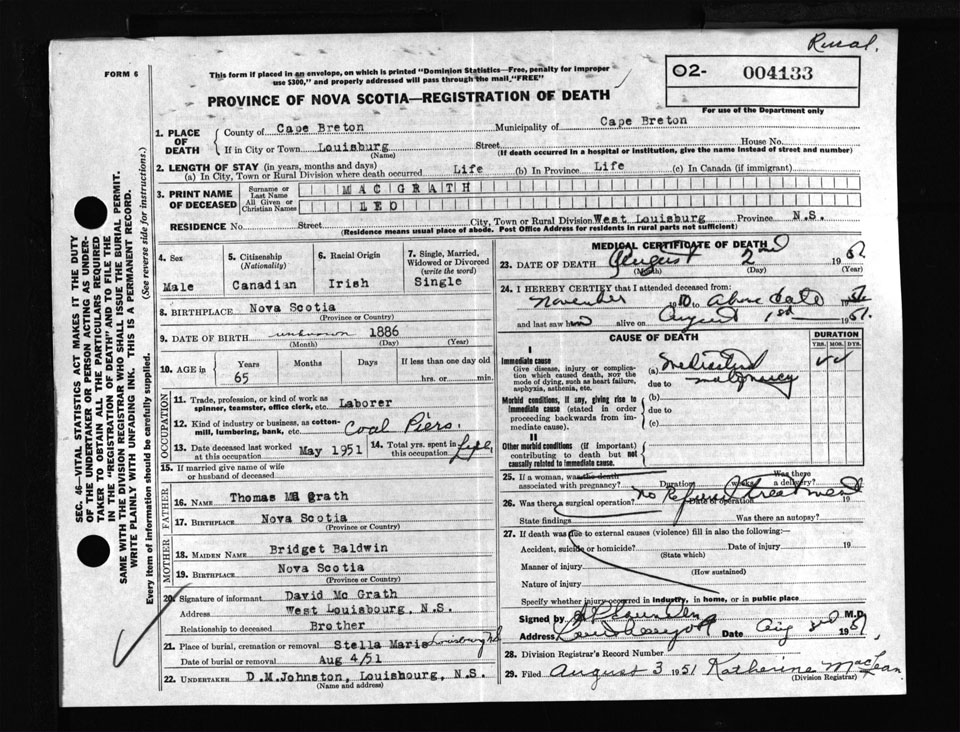 Rural.
FORM 6
This form if placed in an envelope, on which is printed "Dominion Statistics—Free, penalty for improper
use $300," and properly addressed will pass through the mail "FREE"
PROVINCE OF NOVA SCOTIA—REGISTRATION OF DEATH
02- 004133
For use of the Department only
SEC. 46—VITAL STATISTICS ACT MAKES IT THE DUTY
OF THE UNDERTAKER OR PERSON ACTING AS UNDER-
TAKER TO OBTAIN ALL THE PARTICULARS REQUIRED
IN THE "REGISTRATION OF DEATH" AND TO FILE THE
SAME WITH THE DIVISION REGISTRAR WHO SHALL ISSUE THE BURIAL PERMIT.
WRITE PLAINLY WITH UNFADING INK. THIS IS A PERMANENT RECORD.
Every item of information should be carefully supplied. (See reverse side for instructions.)
1. PLACE OF DEATH County of Cape Breton Municipality of Cape Breton
If in City or Town Louisburg (Name) Street House No.
(If death occurred in a hospital or institution, give the name instead of street and number)
2. LENGTH OF STAY (in years, months and days)
(a) In City, Town or Rural Division where death occurred Life (b) In Province Life (c) In Canada (if immigrant)
3. PRINT NAME OF DECEASED Surname or Last Name MAC GRATH
All Given or Christian Names LEO
RESIDENCE No. Street City, Town or Rural Division West Louisburg Province N.S.
(Residence means usual place of abode. Post Office Address for Residents in rural parts not sufficient)
4. Sex 5. Citizenship (Nationality) 6. Racial Origin 7. Single, Married, Widowed or Divorced (write the word)
Male Canadian Irish Single
8. BIRTHPLACE Nova Scotia
(Province or Country)
9. DATE OF BIRTH unknown 1886
(Month) (Day) (Year)
10. AGE in Years Months Days If less than one day old
65 hrs. or min.
OCCUPATION
11. Trade, profession, or kind of work as
spinner, teamster, office clerk, etc. Laborer
12. Kind of industry or business, as cotton-
mill, lumbering, bank, etc. Coal Piers.
13. Date deceased last worked at this occupation May 1951 14. Total yrs. spent in this occupation Life
15. If married give name of wife
or husband of deceased
FATHER
16. NAME Thomas Mc Grath
17. BIRTHPLACE Nova Scotia
(Province or Country)
MOTHER
18. MAIDEN NAME Bridget Baldwin
19. BIRTHPLACE Nova Scotia
(Province or Country)
20. Signature of informant David Mc Grath
Address West Louisbourg, N.S.
Relationship to deceased Brother
21. Place of burial, cremation or removal Stella Maris Louisburg N.S.
Date of burial or removal Aug 4/51
22. UNDERTAKER D.M.Johnston, Louisbourg, N.S.
(Name and address)
MEDICAL CERTIFICATE OF DEATH
23. DATE OF DEATH August 2nd 1951
(Month) (Day) (Year)
24. I HEREBY CERTIFY that I attended deceased from:
November 19 to above date 19
and last saw him alive on August 1st 1951.
CAUSE OF DEATH
DURATION
YRS. MOS. DYS.
I
Immediate cause
Give disease, injury or complica-
tion which caused death, NOT the
mode of dying, such as heart failure,
asphyxia, asthenia, etc.
(a)
due to malignancy
Morbid conditions, if any, giving rise to
immediate cause (stated in order
proceeding backwards from im-
mediate cause).
(b)
due to
(c)
II
Other morbid conditions (if important)
contributing to death but not
causally related to immediate cause.
25. If a woman, was the death Was there
associated with pregnancy? Duration weeks a delivery?
26. Was there a surgical operation? No Refused treatment Date of operation 19
State findings Was there an autopsy?
27. If death was due to external causes (violence) fill in also the following:—
Accident, suicide or homicide? Date of injury 19
(State which)
Manner of injury
(How sustained)
Nature of injury
Specify whether injury occurred in industry, in home, or in public place
Signed by M.D.
Address Date Aug 3rd 1951.
28. Division Registrar's Record Number
29. Filed August 3 1951 Katherine MacLean
(Division Registrar)